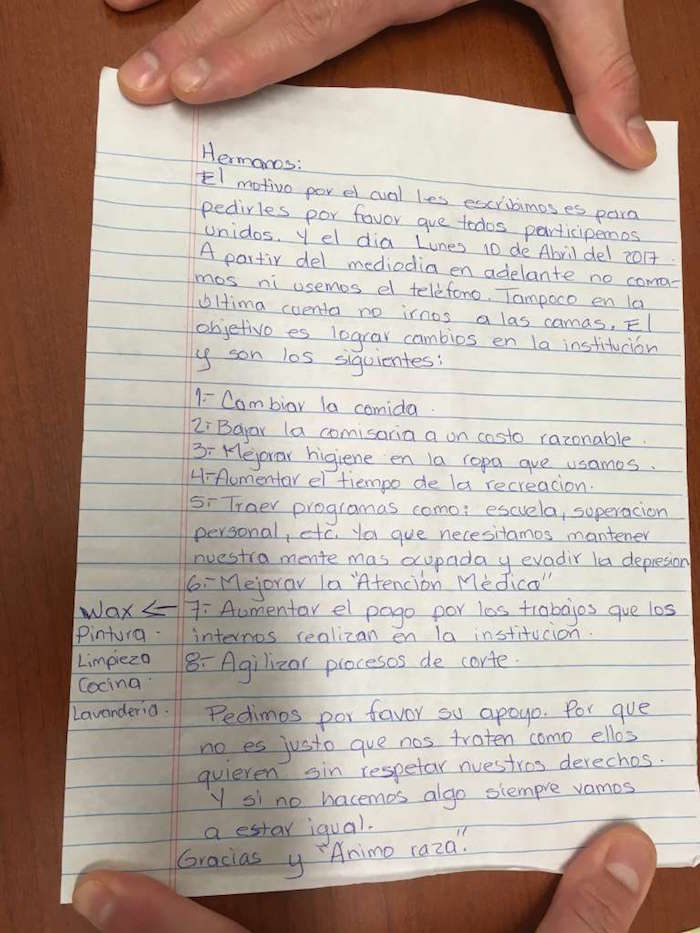 Hermanos:
El motivo por el cual les escribimos es para
pedirles por favor que todos participemos
unidos. Y el dia Lunes 10 de Abril del 2017.
A partir del mediodia en adelante no coma-
mos ni usemos el teléfono. Tampoco en la
última cuenta no irnos a las camas. El
objetivo es lograr cambios en la institución
y son los siguientes:
1.- Cambiar la comida.
2.- Bajar la comisaria a un costo razonable.
3.- Mejorar higiene en la ropa que usamos.
4.- Aumentar el tiempo de la recreacion.
5.- Traer programas como: escuela, superacion
personal, etc. Ya que necesitamos mantener
nuestra mente mas ocupada y evadir la depresion
6.- Mejorar la "Atención Médica"
Wax ← 7.- Aumentar el pago por los trabajos que los
Pintura. internos realizan en la institución.
Limpieza 8.- Agilizar procesos de corte.
Cocina.
Lavanderia. Pedimos por favor su apoyo. Por que
no es justo que nos traten como ellos
quieren sin respetar nuestros derechos.
Y si no hacemos algo siempre vamos
a estar igual.
Gracias y "Animo raza".